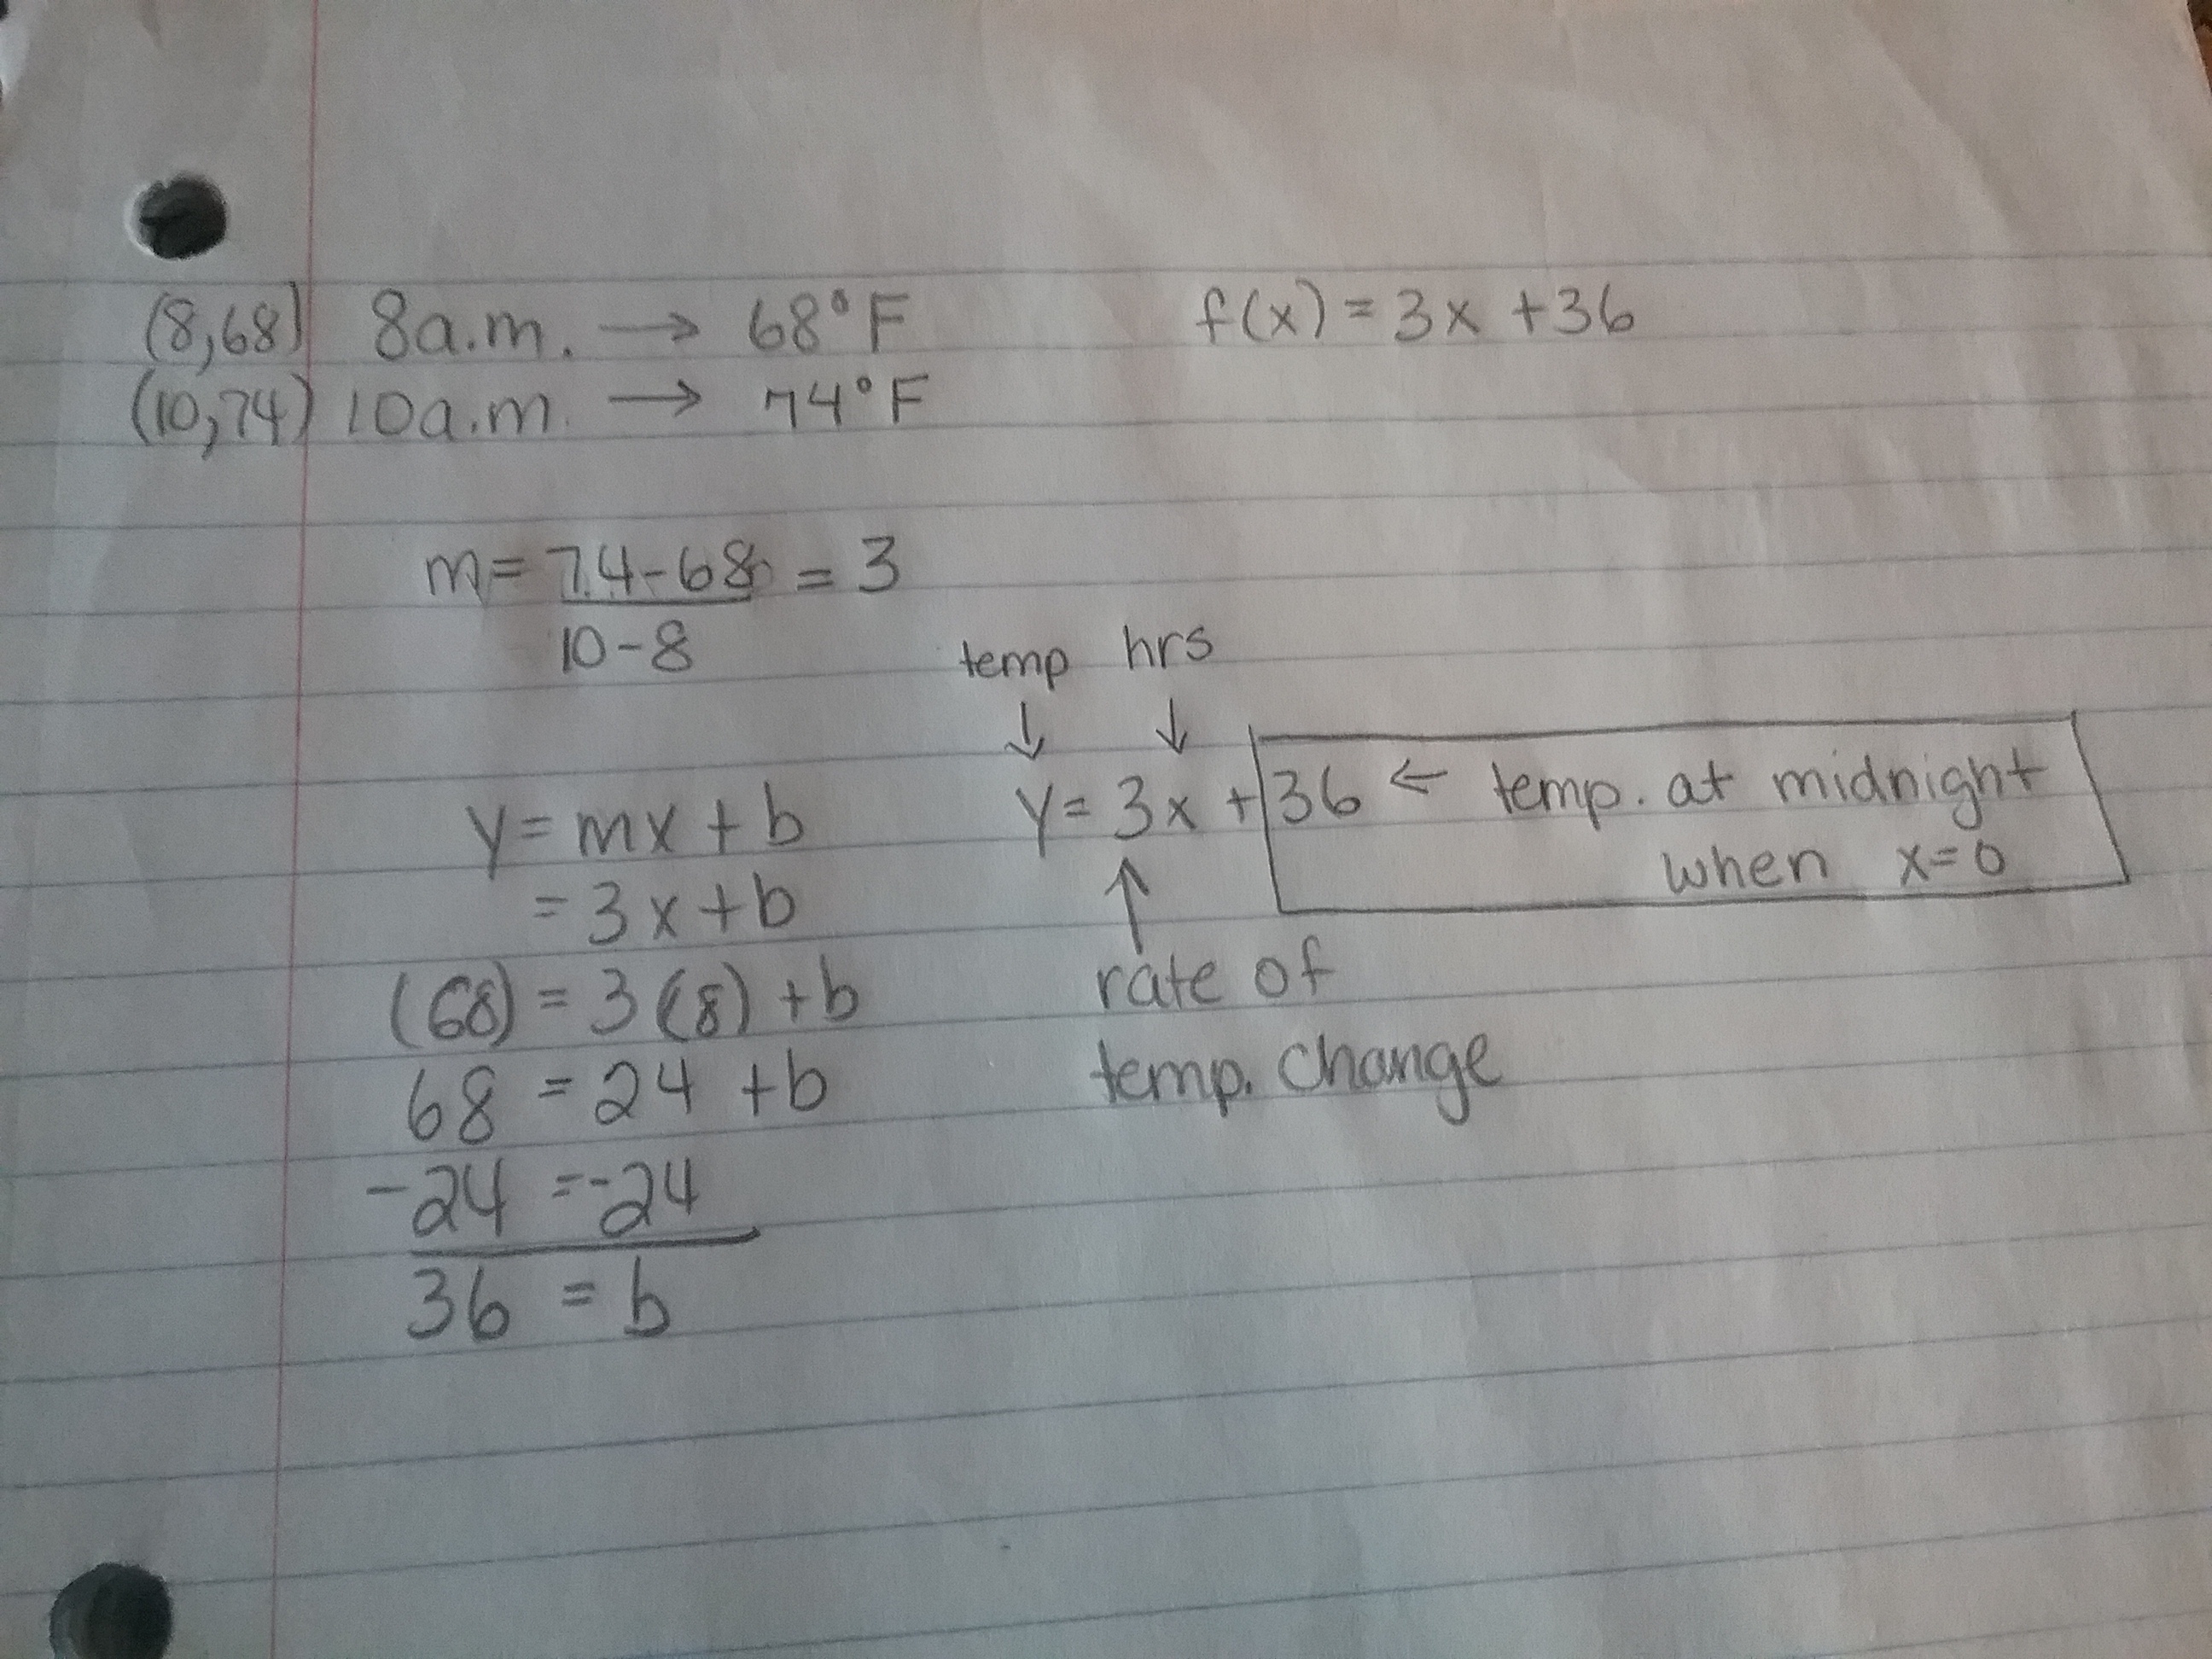 (8,68) 8a.m. → 68°F
(10,74) 10a.m. → 74°F
f(x) = 3x +36
m = 74-68 = 3
10-8
y = mx + b
= 3x + b
(68) = 3(8) + b
68 = 24 + b
-24 = -24
36 = b
temp hrs
↓ ↓
y = 3x + 36 ← temp. at midnight
when x=0
↑
rate of
temp. change